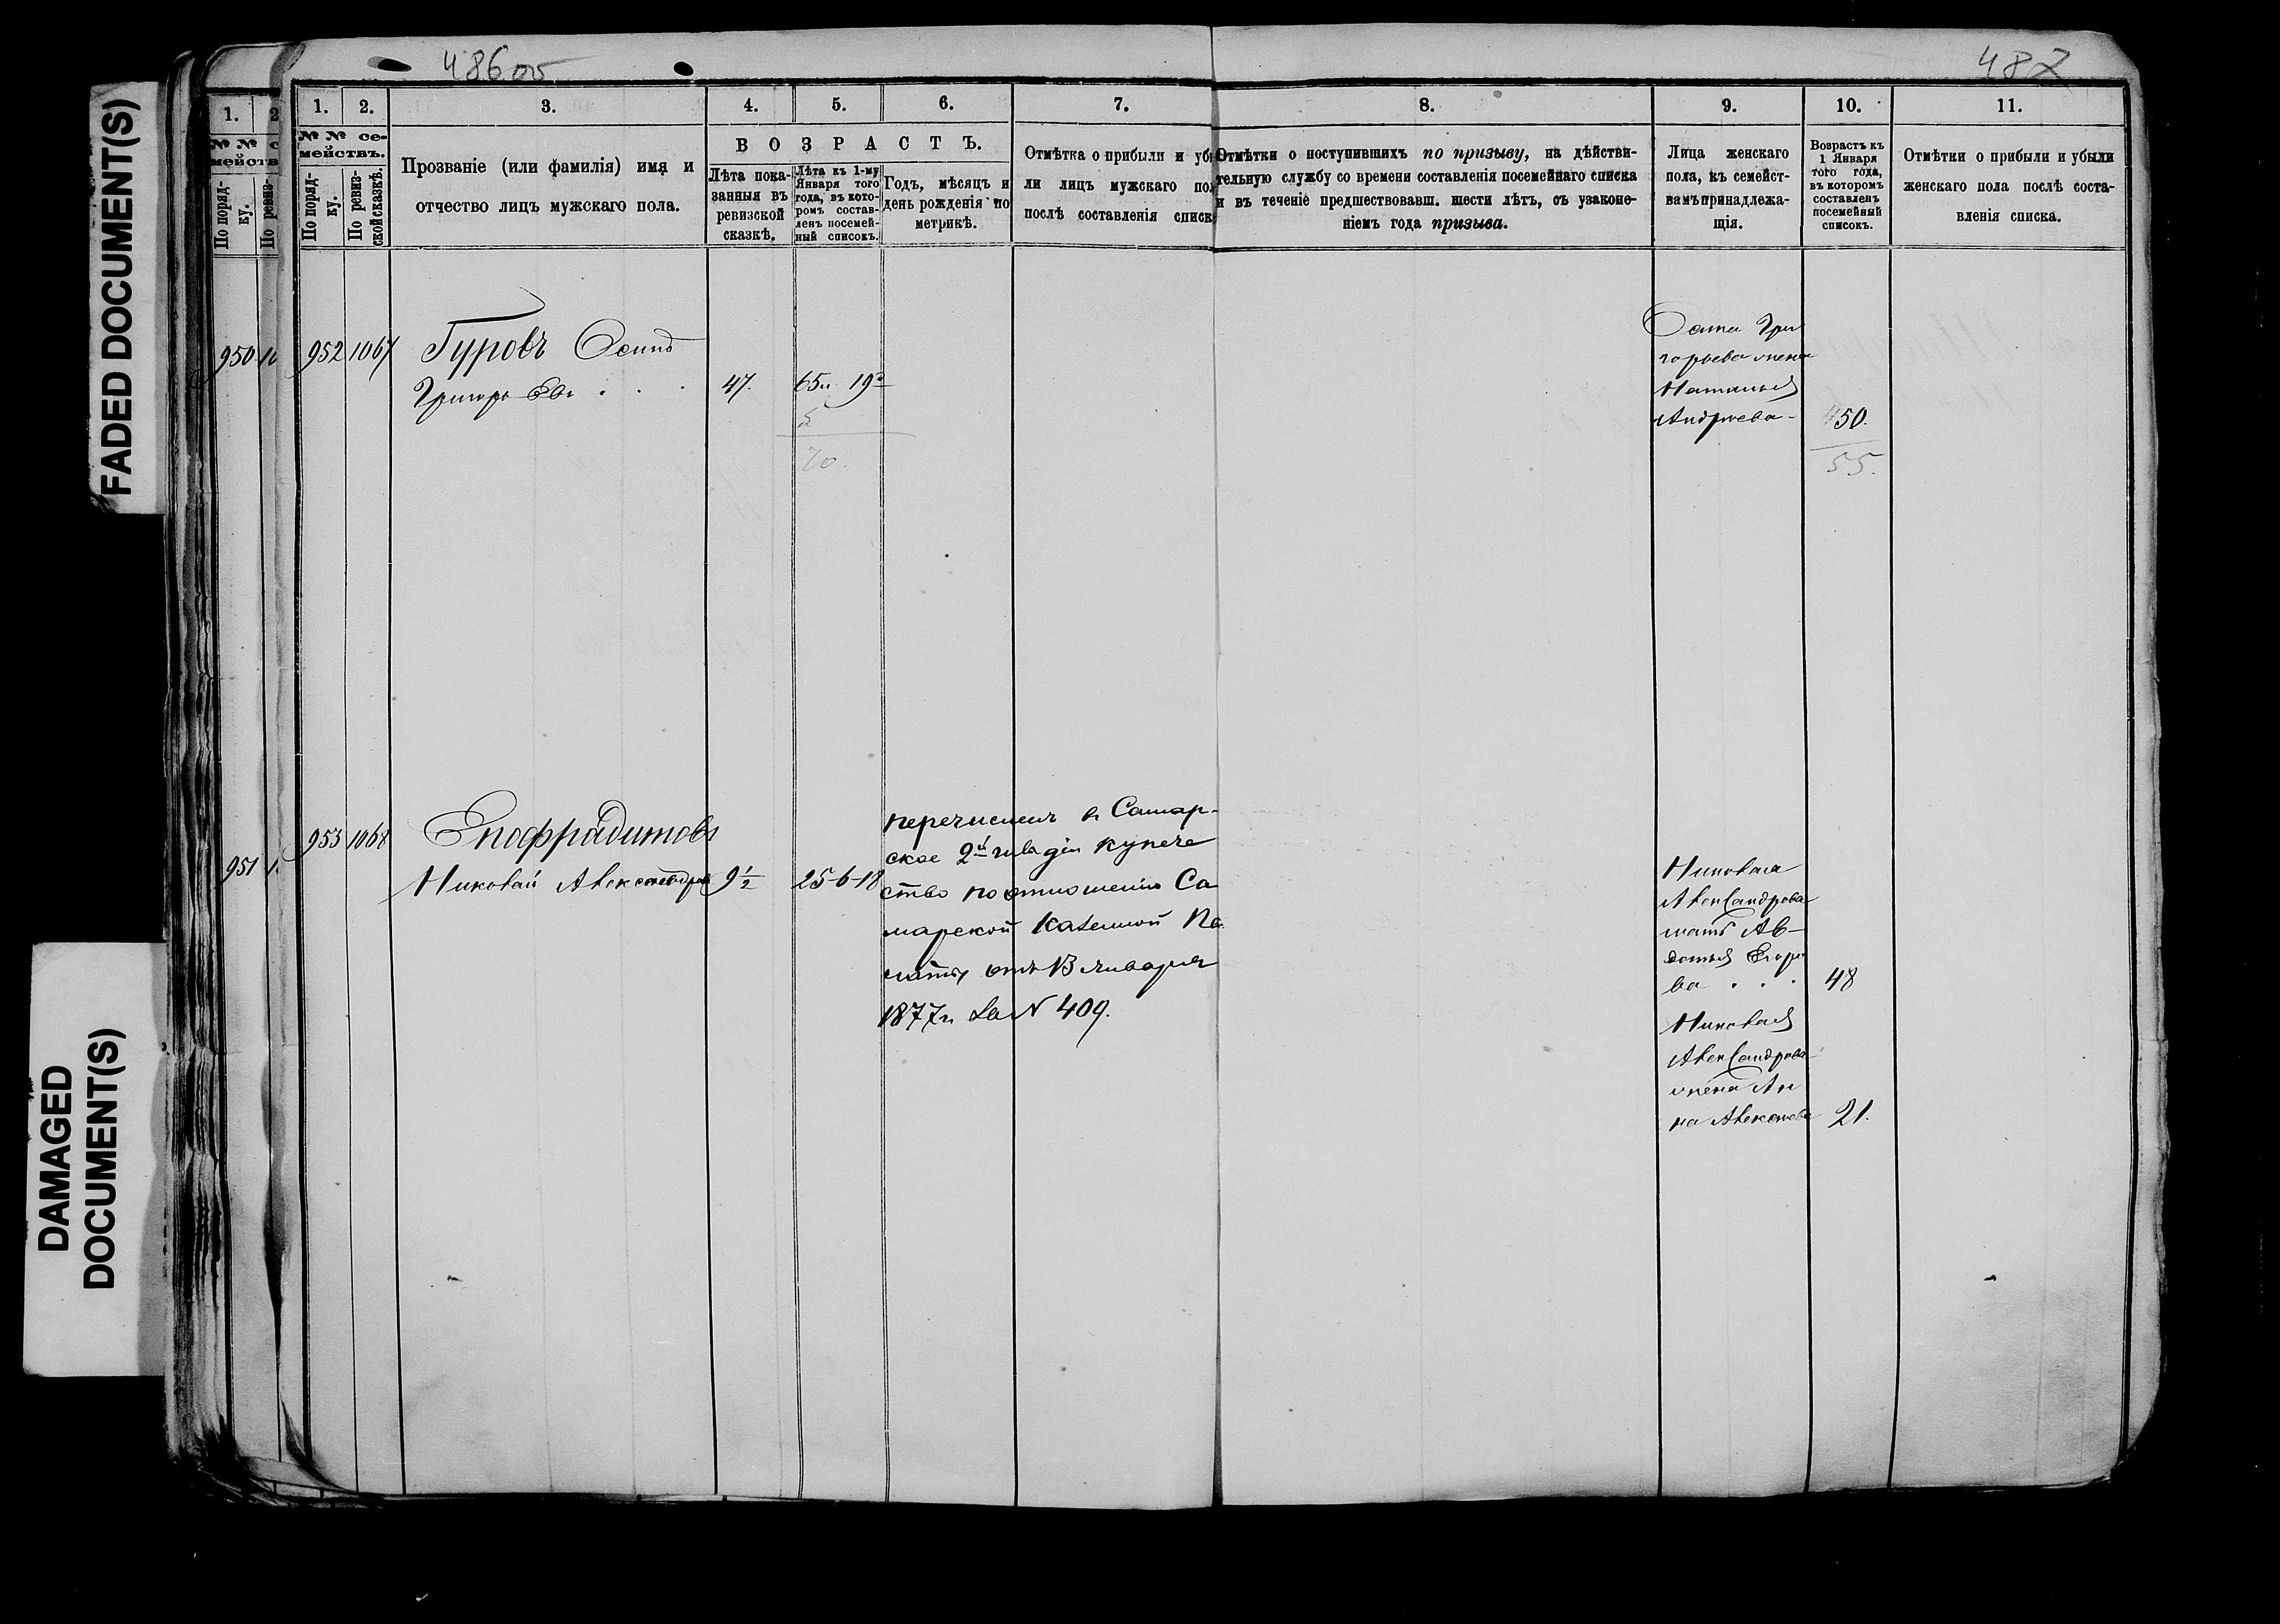 FADED DOCUMENT(S)
DAMAGED
DOCUMENT(S)
486 об
487
1.
2.
3.
4.
5.
6.
7.
8.
9.
10.
11.
№ № се-
мействъ.
По поряд-
ку.
По ревиз-
ской сказкѣ.
Прозваніе (или фамилія) имя и
отчество лицъ мужскаго пола.
ВОЗРАСТЪ.
Лѣта пока-
занныя въ
ревизской
сказкѣ.
Лѣта къ 1-му
Января того
года, въ кото-
ромъ состав-
ленъ посемей-
ный списокъ.
Годъ, мѣсяцъ и
день рожденія по
метрикѣ.
Отмѣтка о прибыли и уб
ли лицъ мужскаго пол
послѣ составленія списк
Отмѣтки о поступившихъ по призыву, на дѣйстви-
тельную службу со времени составленія посемейнаго списка
и въ теченіе предшествовавш. шести лѣтъ, съ узаконе-
ніемъ года призыва.
Лица женскаго
пола, къ семейст-
вамъ принадлежа-
щія.
Возрастъ къ
1 Января
того года,
въ которомъ
составленъ
посемейный
списокъ.
Отмѣтки о прибыли и убыли
женскаго пола послѣ соста-
вленія списка.
1.
2
№ № с
мейств
По поряд-
ку.
По ревиз-
950
951
952 1067 Гуровъ Осипъ
Григорьевъ 47. 65
5
70.
Осипа Гри
горьева жена
Наталья
Андреева - 50.
55.
953 1068 Епафрадитовъ
Николай Александров 9½ 25-6-18
перечисленъ въ Самар-
ское 2й гильдіи купече
ство по отношенію Са
марской Казенной Па
латы отъ 13 января
1877 г. за № 409.
Николая
Александрова
мать Ав-
дотья Егоро
ва 48
Николая
Александрова
жена Ан
на Алексеева 21.